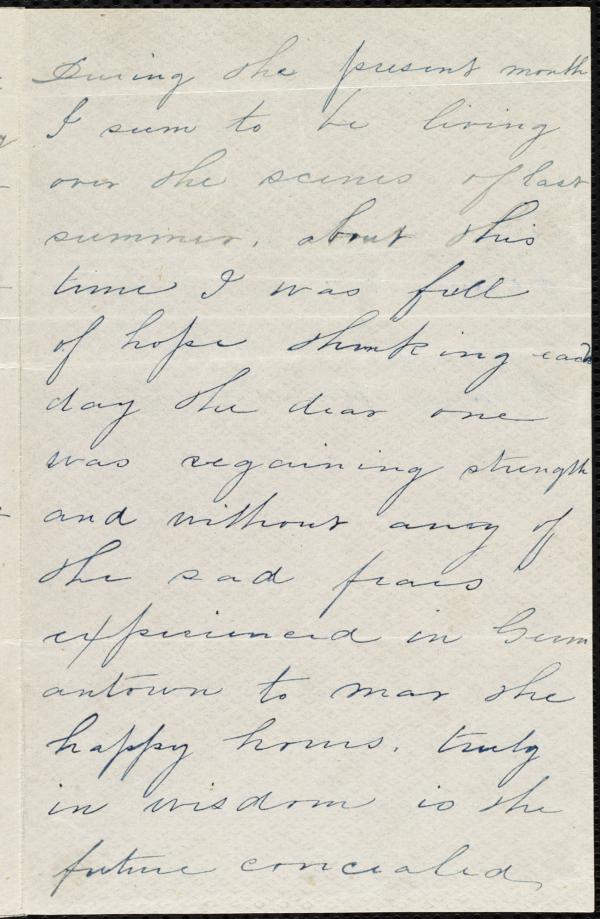 During the present month
I seem to be living
over the scenes of last
summer. about this
time I was full
of hope thinking each
day the dear one
was regaining strength
and without any of
the sad fears
experienced in Germ
antown to mar the
happy hours. truly
in wisdom is the
future concealed